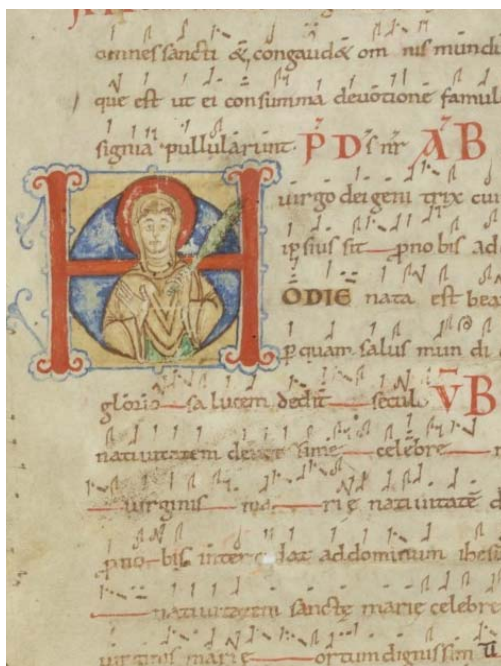 omnes sancti & congaud& om nis mundi
que est ut ei consumma devotione famul
signia pullularunt P D's nr A B
virgo dei geni trix cui
ipsius sit pno bis ad
HODIE nata est bea
p quam salus mun di
glorio sa lucem dedit seculi V B
nativitatem devot ssime celebre
virginis ma rie nativitatē d
pno bis interc dat ad dominum ihesu
nativitatem sanctę marie celebre
virginis marie ortum dignissim